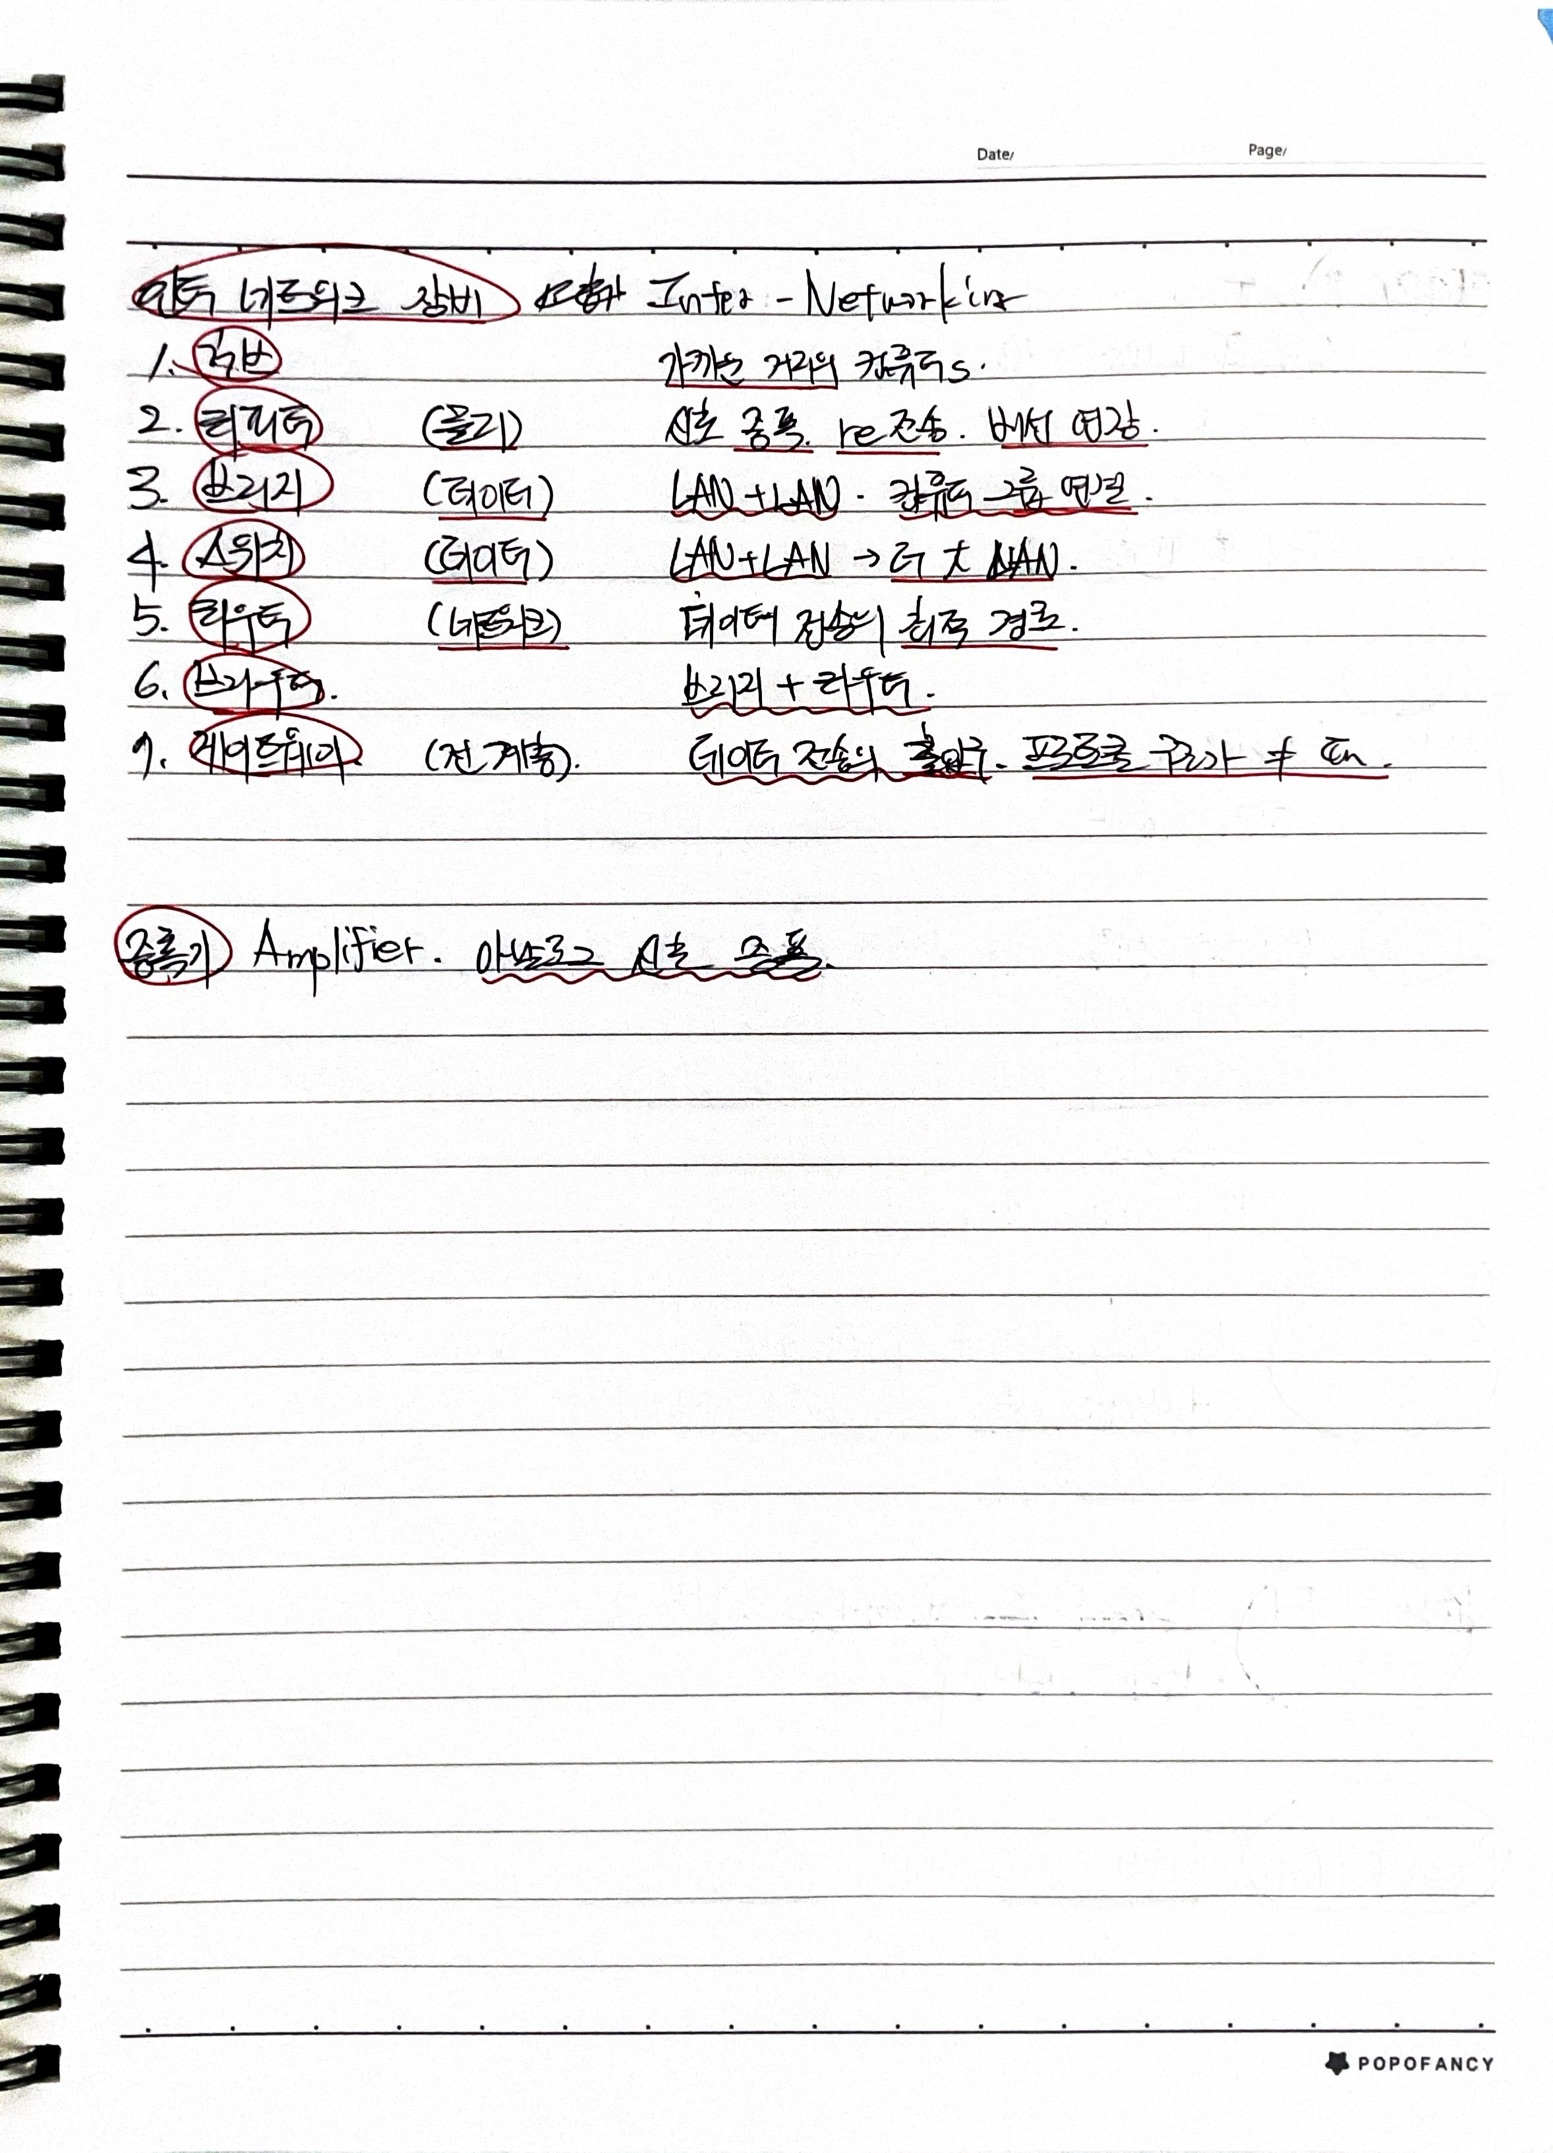 Date/ Page/
인터 네트워크 장비 Inter-Networking
1. 허브 가까운 거리의 컴퓨터s.
2. 리피터 (물리) 신호 증폭. re전송. 배선 연장.
3. 브리지 (데이터) LAN+LAN. 컴퓨터 그룹 연결.
4. 스위치 (데이터) LAN+LAN → 더 大 LAN.
5. 라우터 (네트워크) 데이터 전송의 최적 경로.
6. 브라우터. 브리지 + 라우터.
7. 게이트웨이 (전 계층). 데이터 전송의 출입구. 프로토콜 구조가 ≠
증폭기 Amplifier. 아날로그 신호 증폭.
POPOFANCY